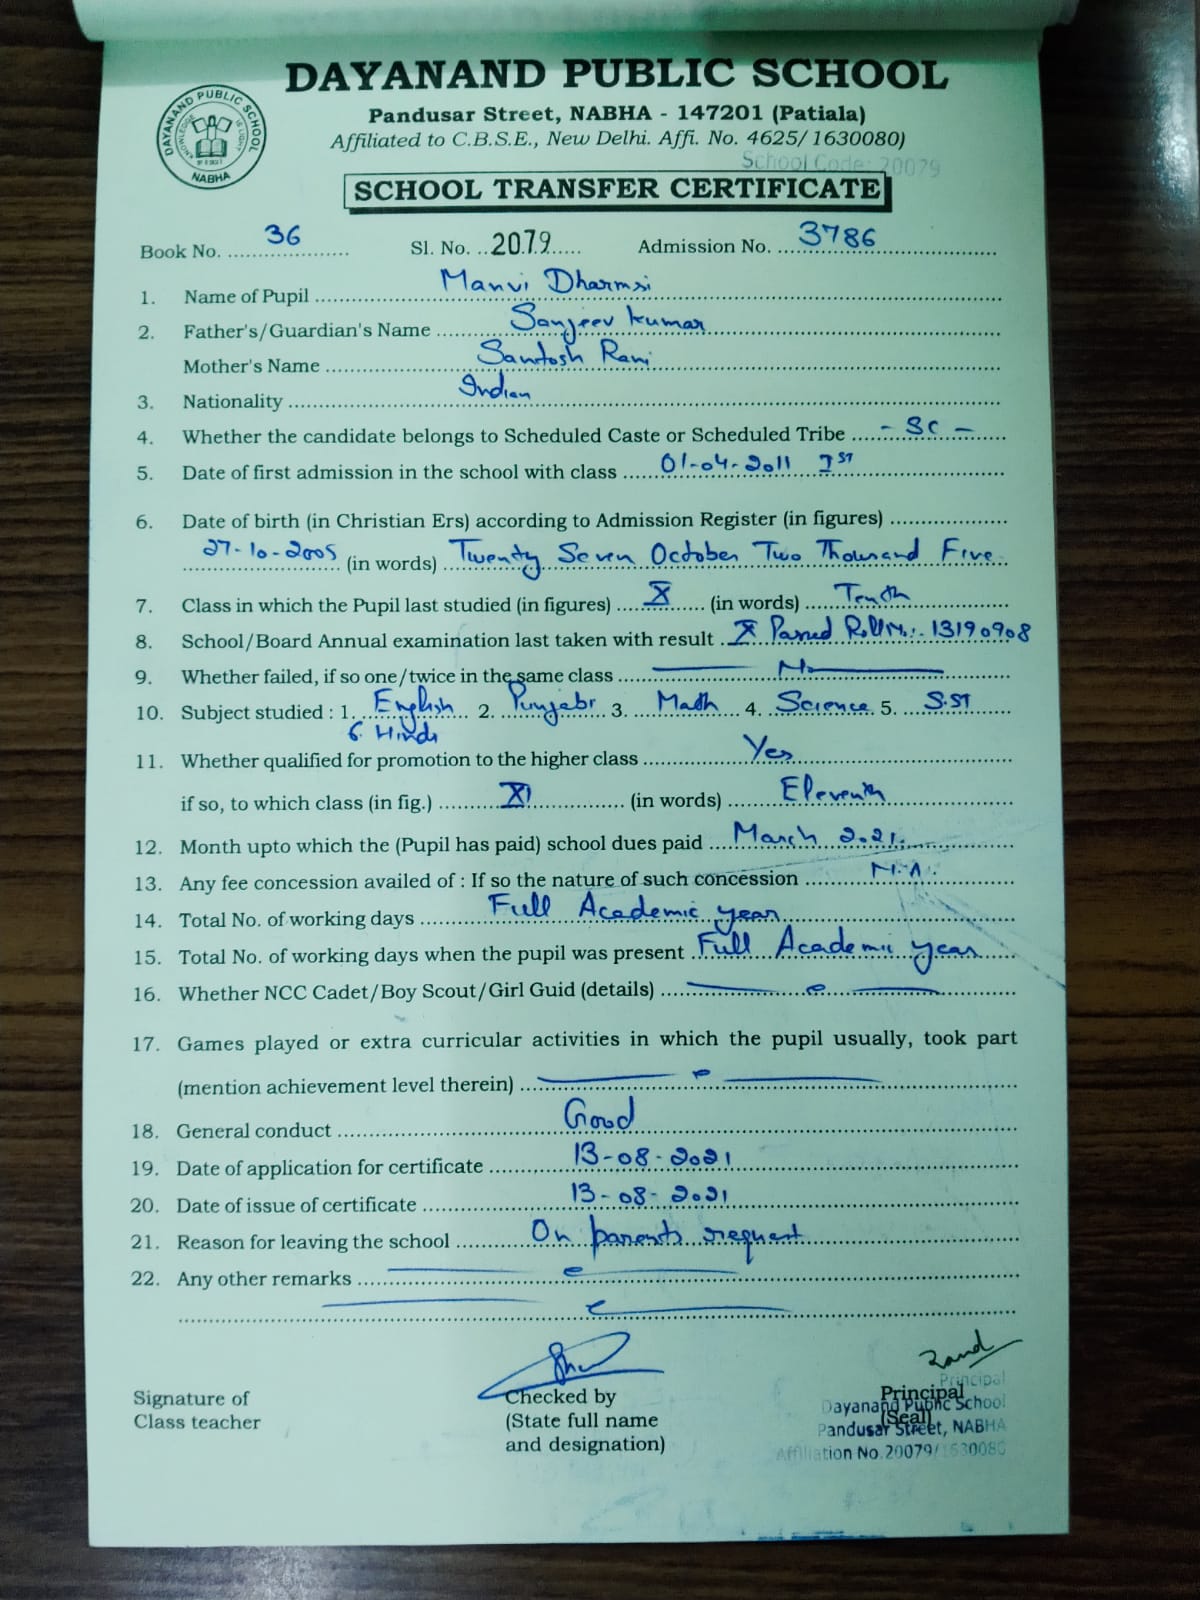 DAYANAND PUBLIC SCHOOL
Pandusar Street, NABHA - 147201 (Patiala)
Affiliated to C.B.S.E., New Delhi. Affi. No. 4625/1630080)
School Code: 20079
DAYANAND PUBLIC SCHOOL
KNOWLEDGE IS LIGHT
NABHA
SCHOOL TRANSFER CERTIFICATE
Book No. 36 Sl. No. 2079 Admission No. 3786
1. Name of Pupil Manvi Dharmsi
2. Father's/Guardian's Name Sanjeev Kumar
Mother's Name Santosh Rani
3. Nationality Indian
4. Whether the candidate belongs to Scheduled Caste or Scheduled Tribe - SC -
5. Date of first admission in the school with class 01-04-2011 IST
6. Date of birth (in Christian Ers) according to Admission Register (in figures)
27-10-2005 (in words) Twenty Seven October Two Thousand Five
7. Class in which the Pupil last studied (in figures) X (in words) Tenth
8. School/Board Annual examination last taken with result X Passed Roll No:- 13190908
9. Whether failed, if so one/twice in the same class No
10. Subject studied : 1. English 2. Punjabi 3. Math 4. Science 5. S.ST
6. Hindi
11. Whether qualified for promotion to the higher class Yes
if so, to which class (in fig.) XI (in words) Eleventh
12. Month upto which the (Pupil has paid) school dues paid March 2021
13. Any fee concession availed of : If so the nature of such concession N.A.
14. Total No. of working days Full Academic year
15. Total No. of working days when the pupil was present Full Academic year
16. Whether NCC Cadet/Boy Scout/Girl Guid (details)
17. Games played or extra curricular activities in which the pupil usually, took part
(mention achievement level therein)
18. General conduct Good
19. Date of application for certificate 13-08-2021
20. Date of issue of certificate 13-08-2021
21. Reason for leaving the school On parents request
22. Any other remarks
Signature of
Class teacher
Checked by
(State full name
and designation)
Principal
(Seal)
Principal
Dayanand Public School
Pandusar Street, NABHA
Affiliation No.20079/1630080